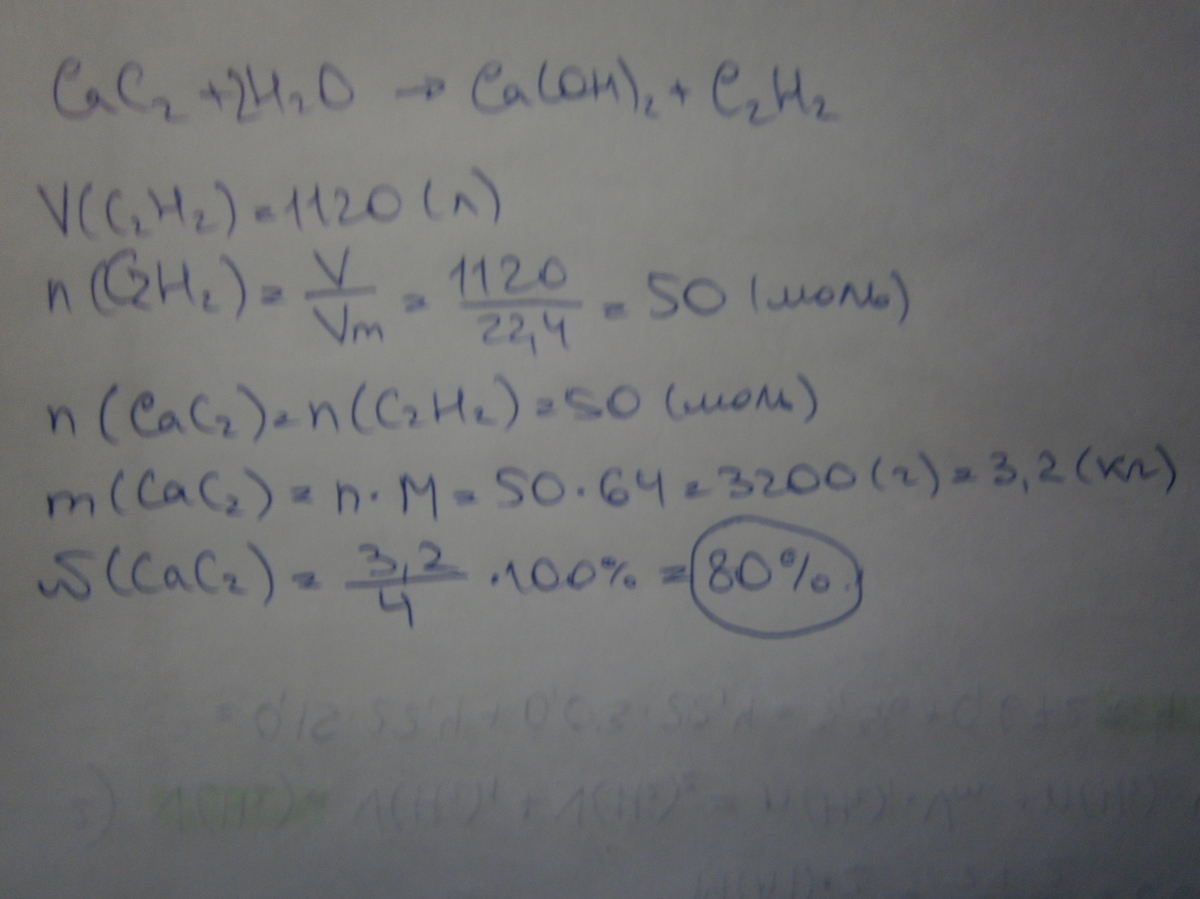 CaC₂ + 2H₂O → Ca(OH)₂ + C₂H₂
V(C₂H₂) = 1120 (л)
n(C₂H₂) = V/Vm = 1120/22,4 = 50 (моль)
n(CaC₂) = n(C₂H₂) = 50 (моль)
m(CaC₂) = n · M = 50 · 64 = 3200 (г) = 3,2 (кг)
ω(CaC₂) = 3,2/4 · 100% = 80%.